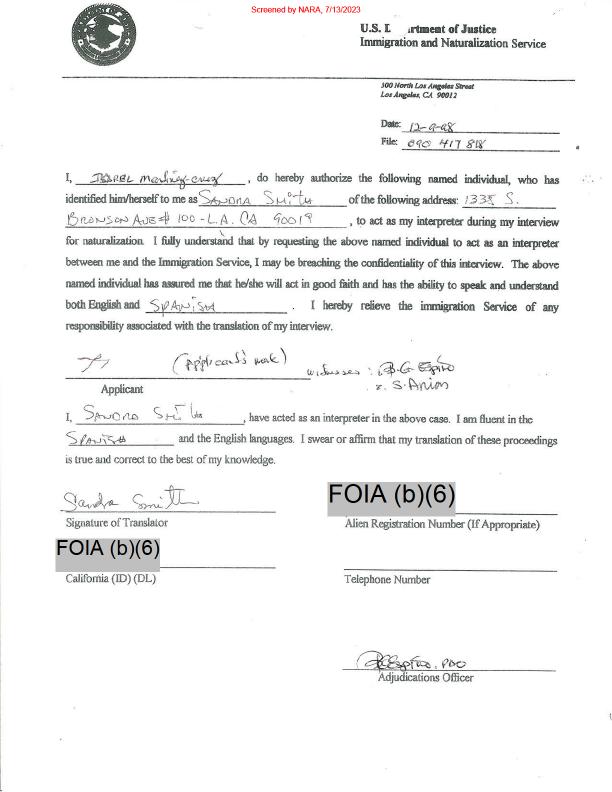 Screened by NARA, 7/13/2023
U.S. D rtment of Justice
Immigration and Naturalization Service
300 North Los Angeles Street
Los Angeles, CA 90012
Date: 12-9-98
File: 090 417 818
I, Isabel Martinez-Cruz, do hereby authorize the following named individual, who has
identified him/herself to me as Sandra Smith of the following address: 1335 S.
Bronson Ave # 100 - L.A. CA 90019, to act as my interpreter during my interview
for naturalization. I fully understand that by requesting the above named individual to act as an interpreter
between me and the Immigration Service, I may be breaching the confidentiality of this interview. The above
named individual has assured me that he/she will act in good faith and has the ability to speak and understand
both English and Spanish. I hereby relieve the immigration Service of any
responsibility associated with the translation of my interview.
(Applicant's mark) witnesses: 1.
2. S.
Applicant
I, Sandra Smith, have acted as an interpreter in the above case. I am fluent in the
Spanish and the English languages. I swear or affirm that my translation of these proceedings
is true and correct to the best of my knowledge.
Sandra Smith
FOIA (b)(6)
Signature of Translator
Alien Registration Number (If Appropriate)
FOIA (b)(6)
California (ID) (DL)
Telephone Number
Adjudications Officer